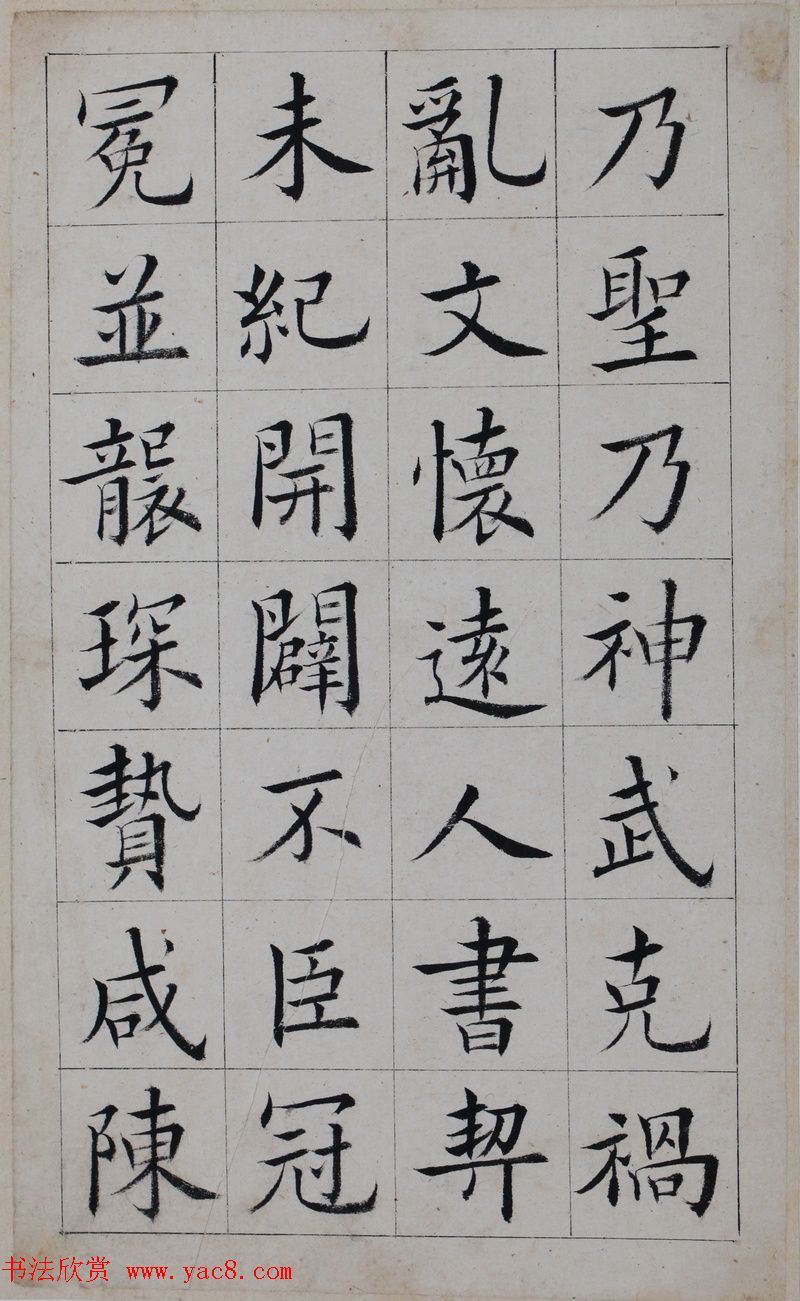 乃聖乃神武克禍
亂文懷遠人書契
未紀開闢不臣冠
冕並襲琛贄咸陳
书法欣赏 www.yac8.com